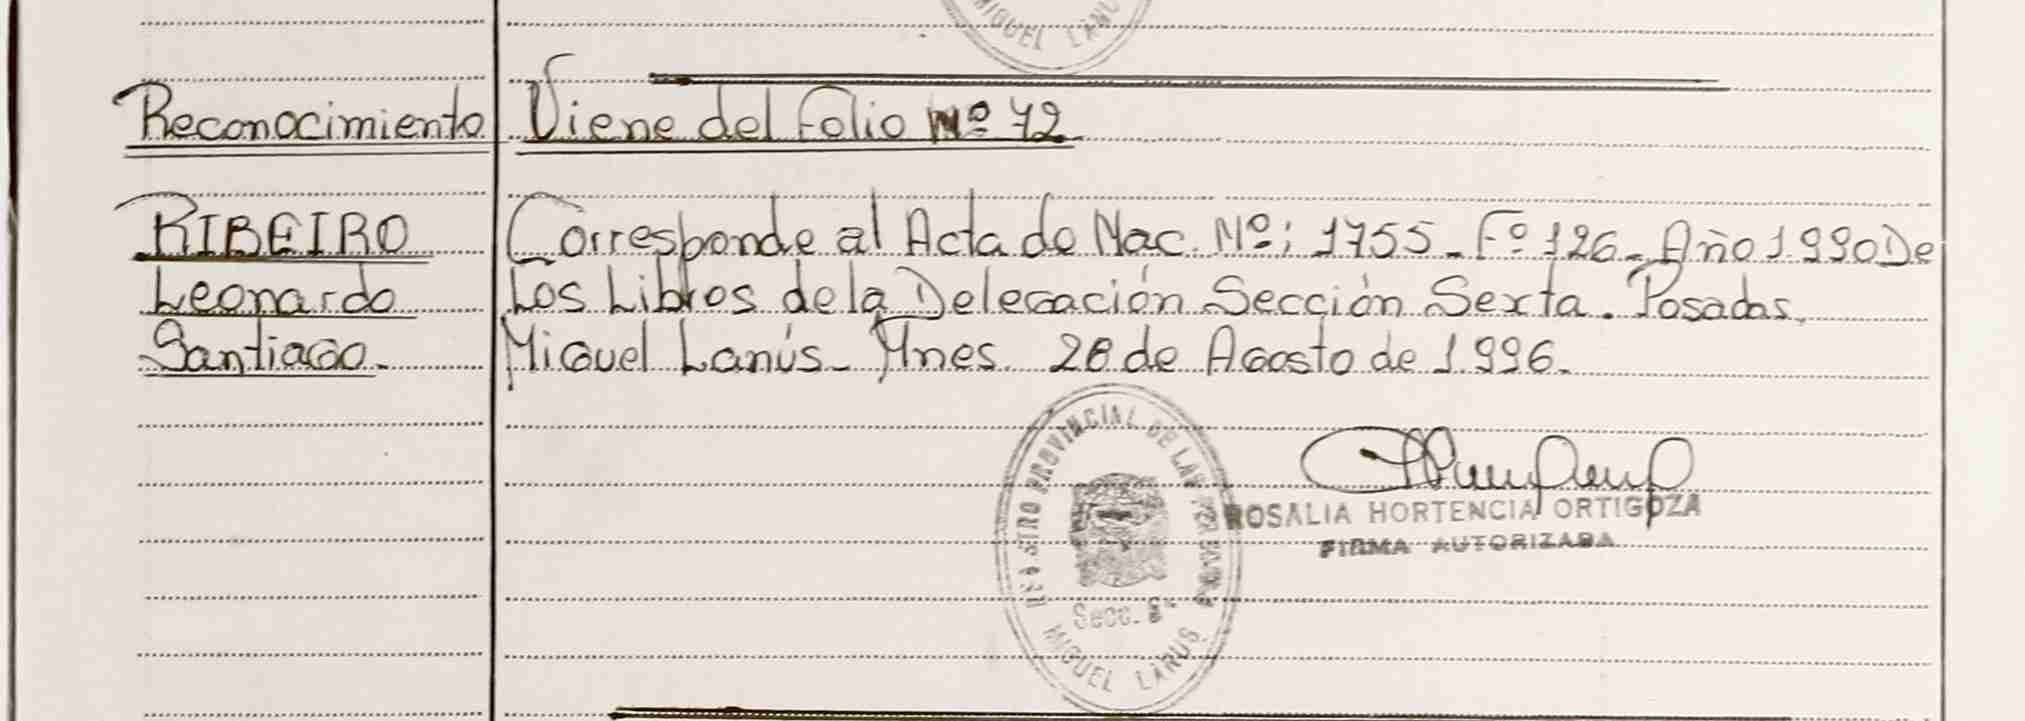 MIGUEL LANUS
Reconocimiento Viene del Folio Nº 72
RIBEIRO Corresponde al Acta de Nac. Nº: 1755 - Fº 126 - Año 1.990 De
Leonardo Los Libros de la Delegación Sección Sexta. Posadas,
Santiago.- Miguel Lanús - Mnes. 28 de Agosto de 1.996.
REGISTRO PROVINCIAL DE LAS PERSONAS
Secc. 6ª
MIGUEL LANUS
ROSALIA HORTENCIA ORTIGOZA
FIRMA AUTORIZADA